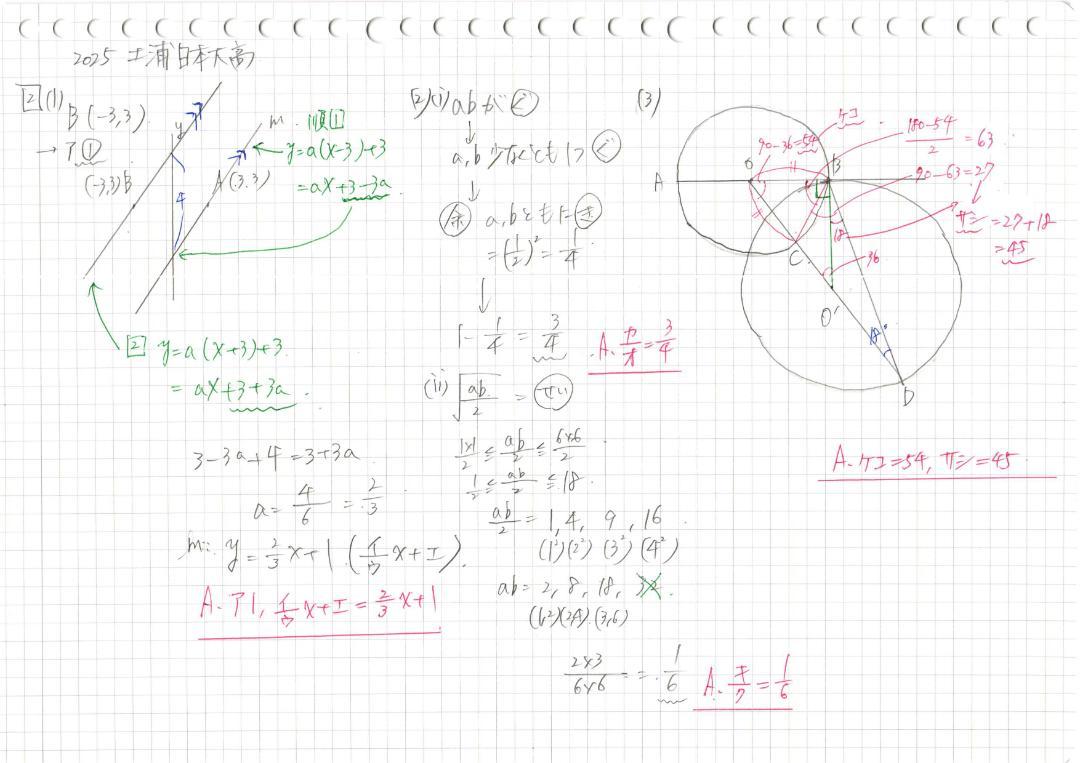 2025 土浦日本大高
[2](1)
B(-3,3)
→ ア①
(-3,3)B
y
4
m
A(3,3)
順①
y=a(x-3)+3
=ax+3-3a
② y=a(x+3)+3
=ax+3+3a.
3-3a+4=3+3a
a=4/6=2/3
m: y=2/3x+1 (イ/ウx+エ).
A. ア1, イ/ウx+エ=2/3x+1
(2)(i) abが㋗
↓
a,b少なくとも1つ㋗
↓
㊇ a,bともに㋖
=(1/2)²=1/4
↓
1-1/4=3/4
A. カ/オ=3/4
(ii) √ab/2 =
1×1/2≦ab/2≦6×6/2
1/2≦ab/2≦18.
ab/2=1,4,9,16
(1²)(2²)(3²)(4²)
ab=2,8,18,32
(1,2)(2,4).(3,6)
2×3/6×6==1/6
A. キ/ク=1/6
(3)
ケコ
90-36=54
180-54/2=63
90-63=27
サシ=27+18
=45
A
O
B
18
C
36
O'
18°
D
A. ケコ=54, サシ=45